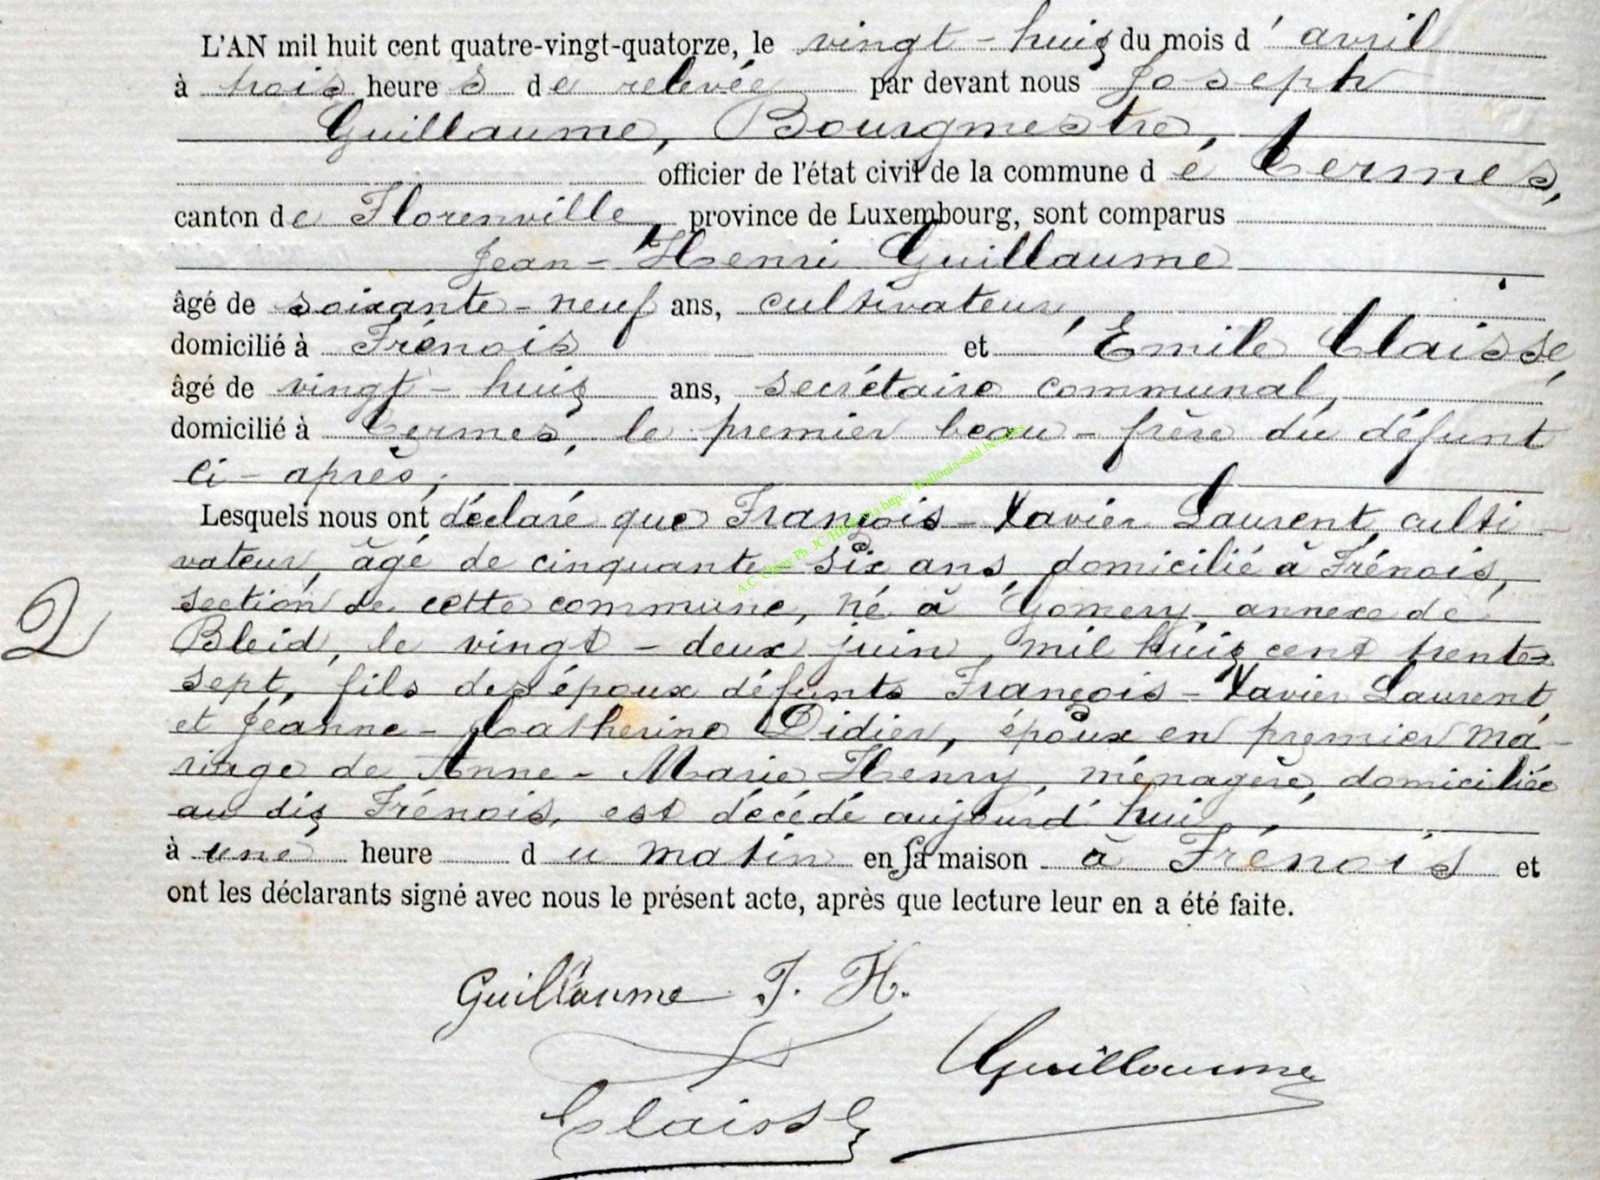 L'AN mil huit cent quatre-vingt-quatorze, le vingt-huit du mois d'avril
à trois heures de relevée par devant nous Joseph
Guillaume, Bourgmestre,
officier de l'état civil de la commune de Termes,
canton de Florenville, province de Luxembourg, sont comparus
Jean-Henri Guillaume
âgé de soixante-neuf ans, cultivateur,
domicilié à Frénois et Emile Claisse,
âgé de vingt-huit ans, secrétaire communal,
domicilié à Termes, le premier beau-frère du défunt
ci-après,
Lesquels nous ont déclaré que François-Xavier Laurent, culti-
vateur, âgé de cinquante-six ans, domicilié à Frénois,
section de cette commune, né à Gomery, annexe de
Bleid, le vingt-deux juin, mil huit cent trente-
sept, fils des époux défunts François-Xavier Laurent
et Jeanne-Catherine Didier, époux en premier ma-
riage de Anne-Marie Henry, ménagère, domiciliée
au dit Frénois, est décédé aujourd'hui,
à une heure du matin en sa maison à Frénois et
ont les déclarants signé avec nous le présent acte, après que lecture leur en a été faite.
2
Guillaume J. H.
Guillaume
Claisse